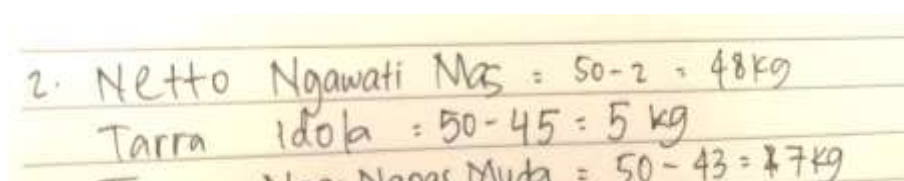 2. Netto Ngawati Mas = 50-2 = 48kg
Tarra Idola = 50-45 = 5 kg
Muda = 50-43 = 7kg